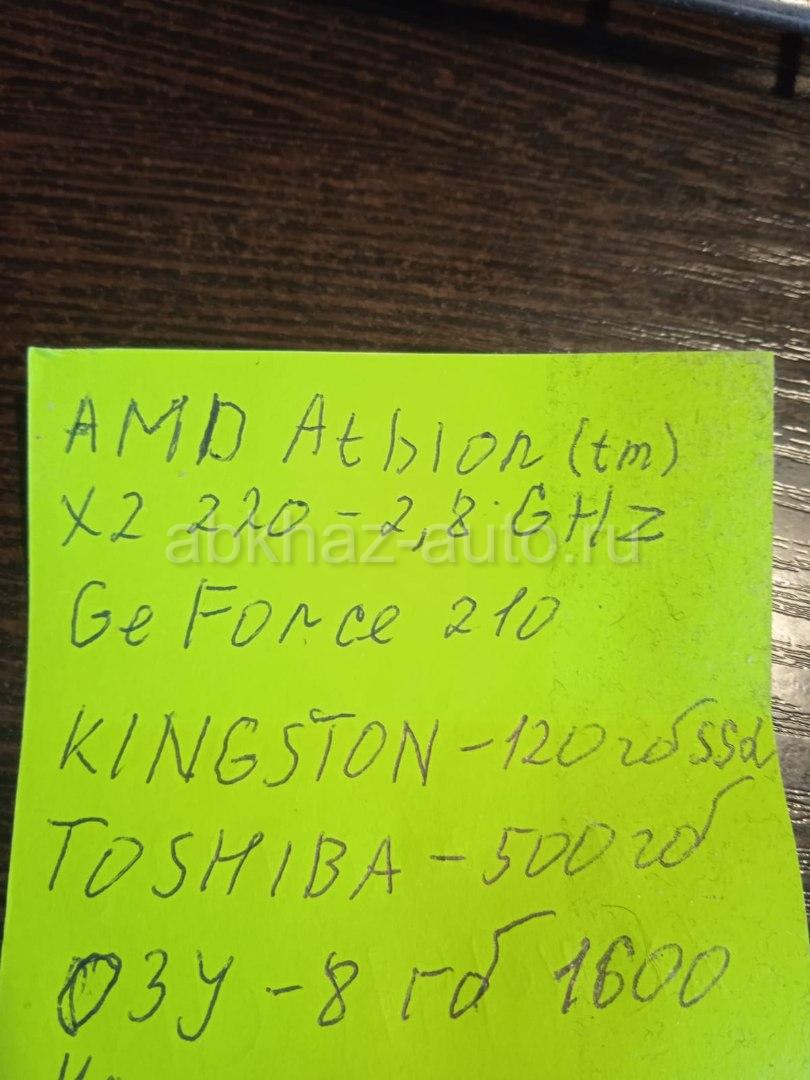 AMD Athlon (tm)
X2 220 - 2,8 GHz
abkhaz-auto.ru
GeForce 210
KINGSTON - 120 гб SSd
TOSHIBA - 500 гб
ОЗУ - 8 гб 1600